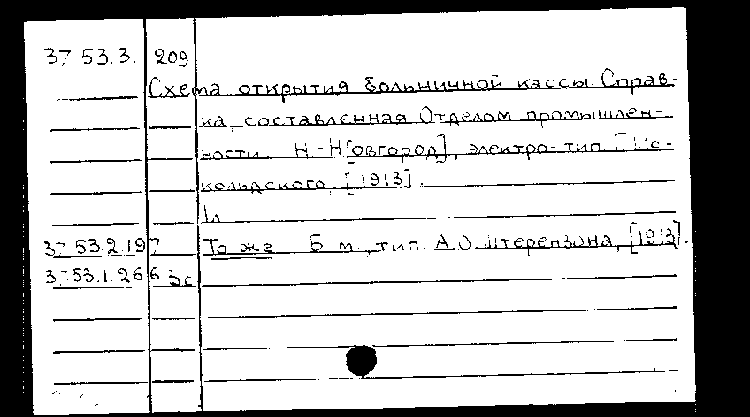 37 53.3. 209
Схема открытия больничной кассы. Справ-
ка, составленная Отделом промышлен-
ности. Н.-Н[овгород], электро-тип.
кольдского, [1913].
37 53.2.197 То же Б м., тип. А.О. Штерензона, [1913].
37 53.1.266 3с